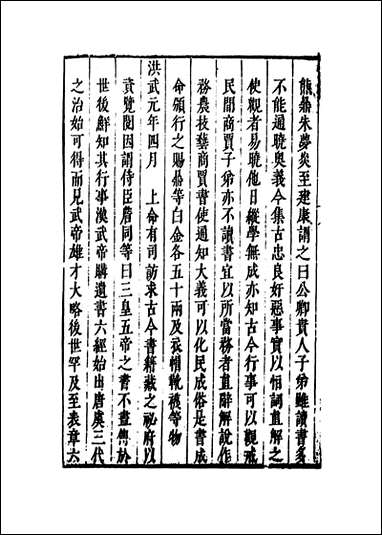 熊鼎朱夢炎至建康謂之曰公卿貴人子弟雖讀書多
不能通曉奧義今集古忠良奸惡事實以恒詞直解之
使觀者易曉他日縱學無成亦知古今行事可以觀戒
民間商賈子弟亦不讀書宜以所當務者直辭解說作
務農技藝商賈書使通知大義可以化民成俗是書成
命頒行之賜鼎等白金各五十兩及衣帽靴襪等物
洪武元年四月　上命有司訪求古今書籍藏之祕府以
資覽閱因謂侍臣詹同等曰三皇五帝之書不盡傳於
世後鮮知其行事漢武帝購遺書六經始出唐虞三代
之治始可得而見武帝雄才大略後世罕及至表章六